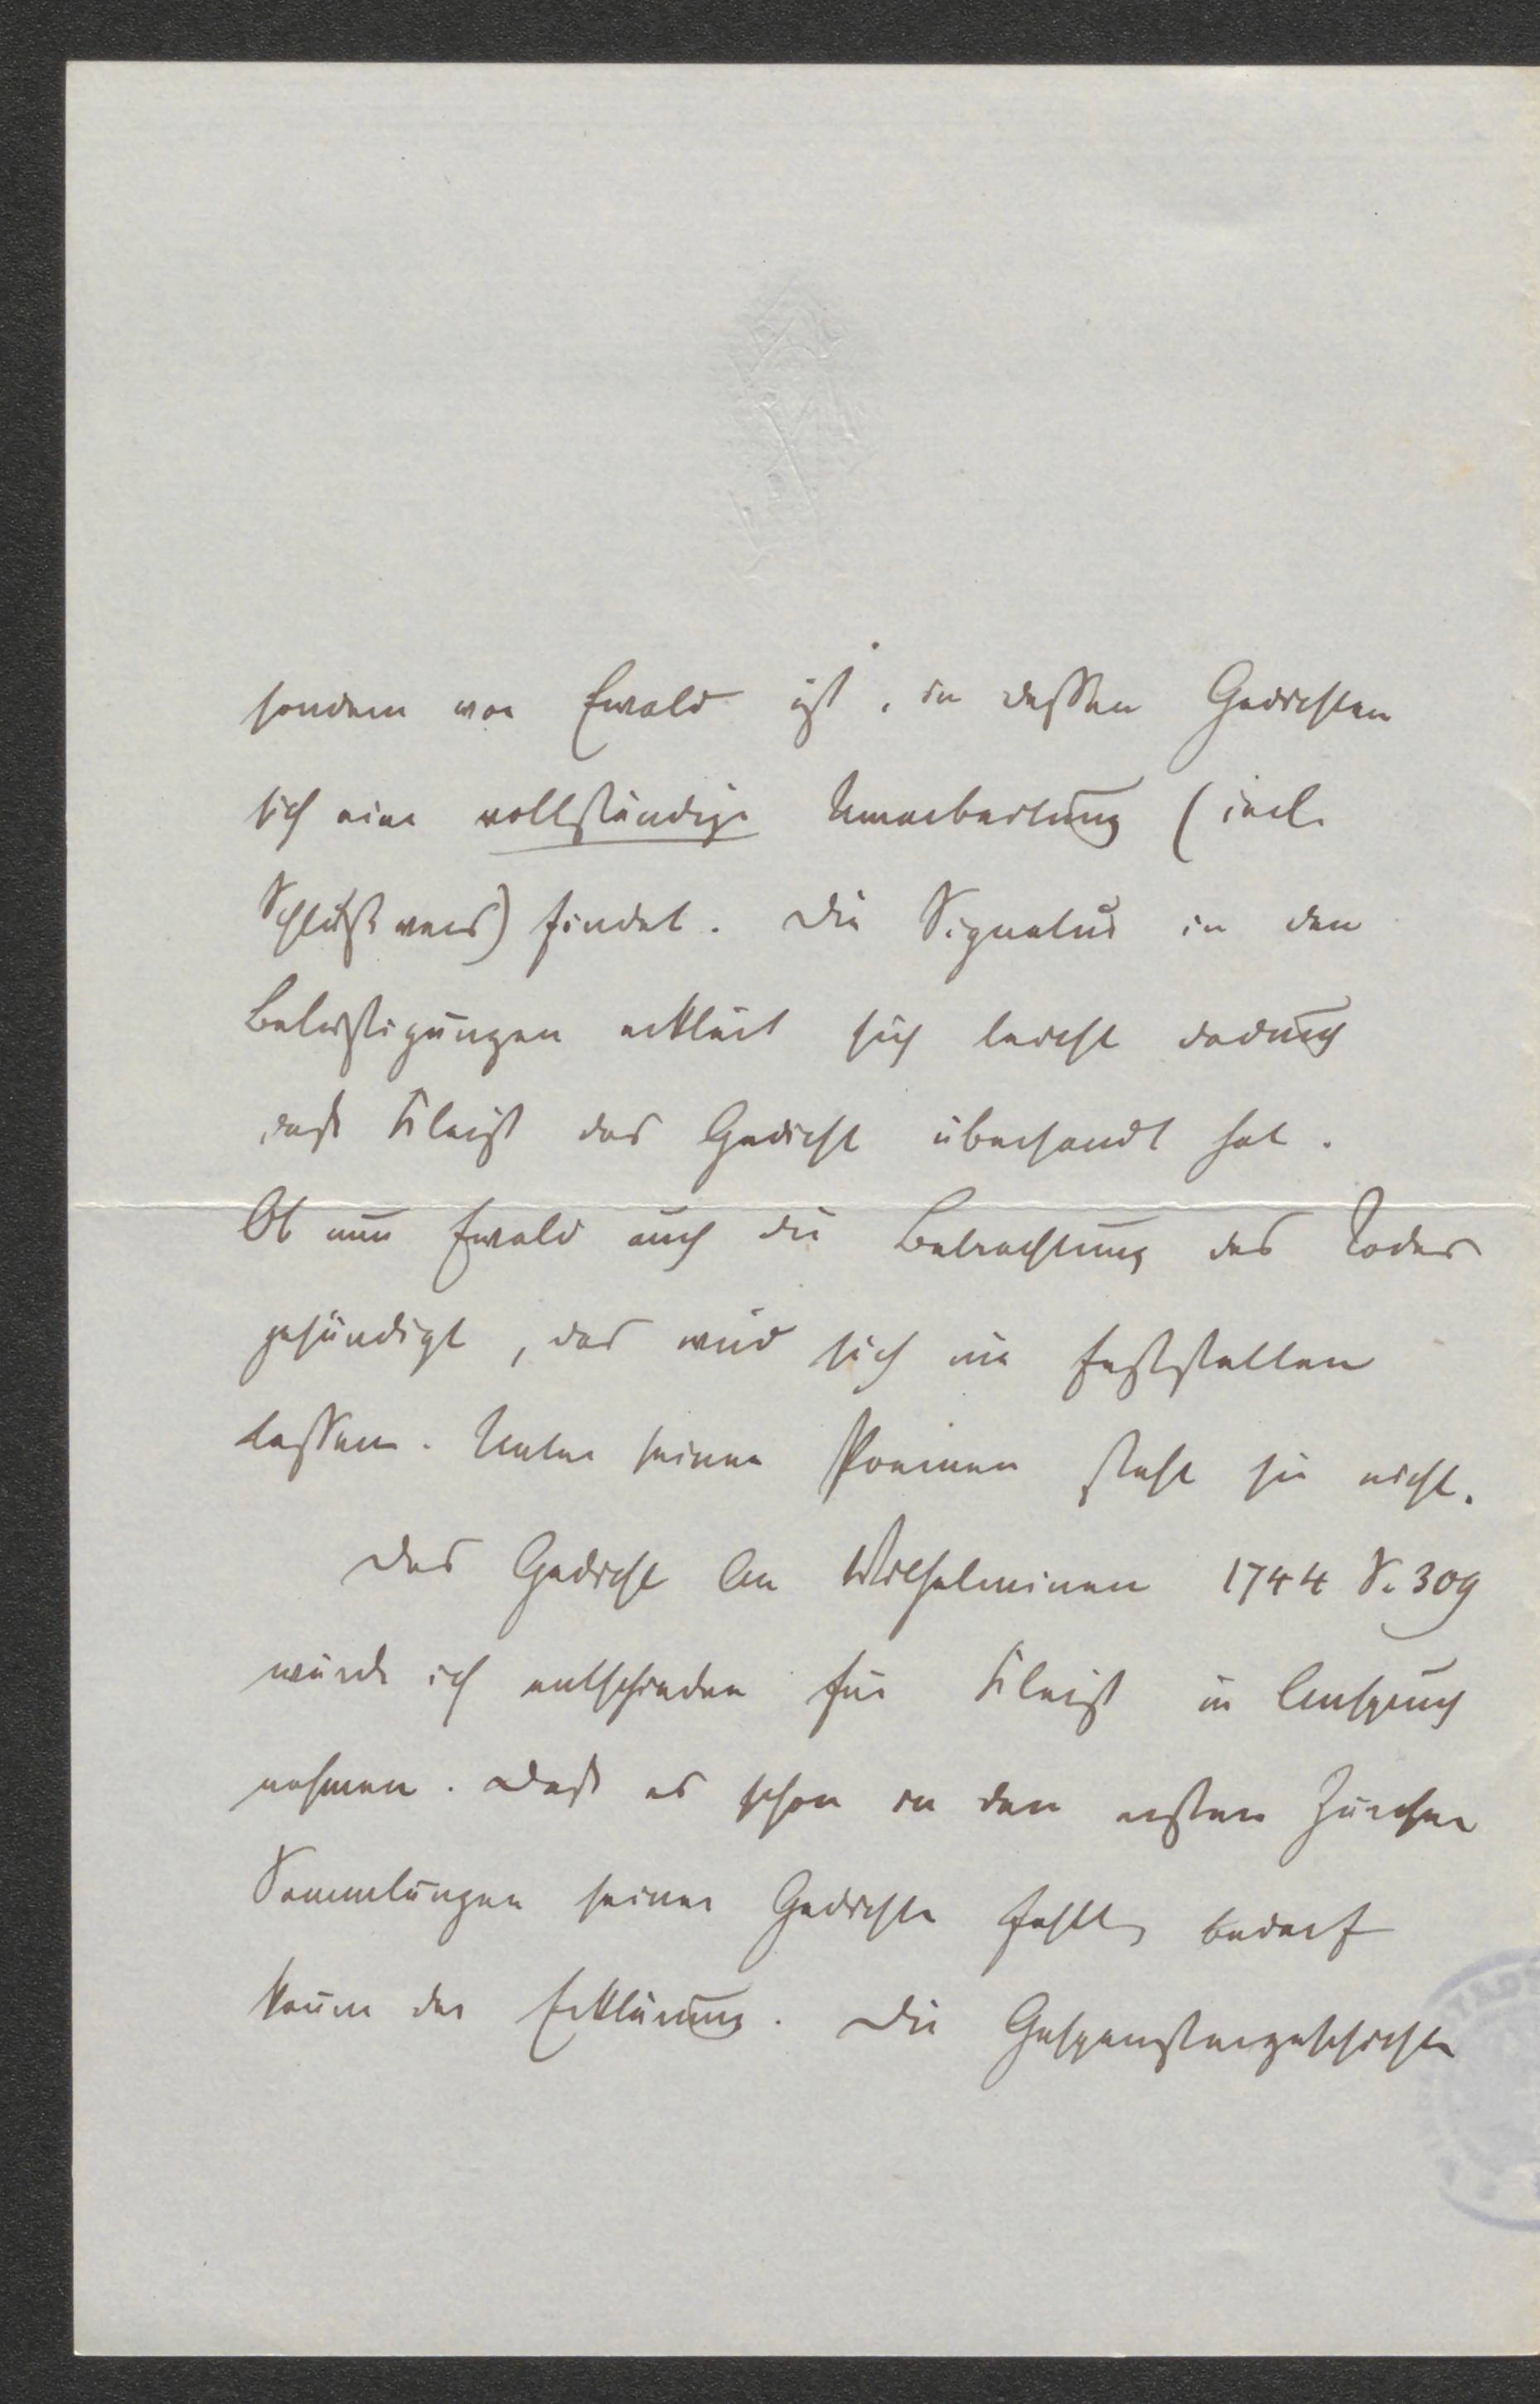 sondern von Ewald ist, in dessen Gedichten
sich eine vollständige Umarbeitung (incl.
Schlußvers) findet. Die Signatur in den
Belustigungen erklärt sich leicht dadurch
daß Kleist das Gedicht übersandt hat.
Ob nun Ewald auch die Betrachtung des Todes
gesündigt, das wird sich nie feststellen
lassen. Unter seinen Poemen steht sie nicht.
Das Gedicht An Wilhelminen 1744 S. 309
würde ich entschieden für Kleist in Anspruch
nehmen. Daß es schon in den ersten Zürcher
Sammlungen seiner Gedichte fehlt, bedarf
kaum der Erklärung. Die Gespenstergeschichte